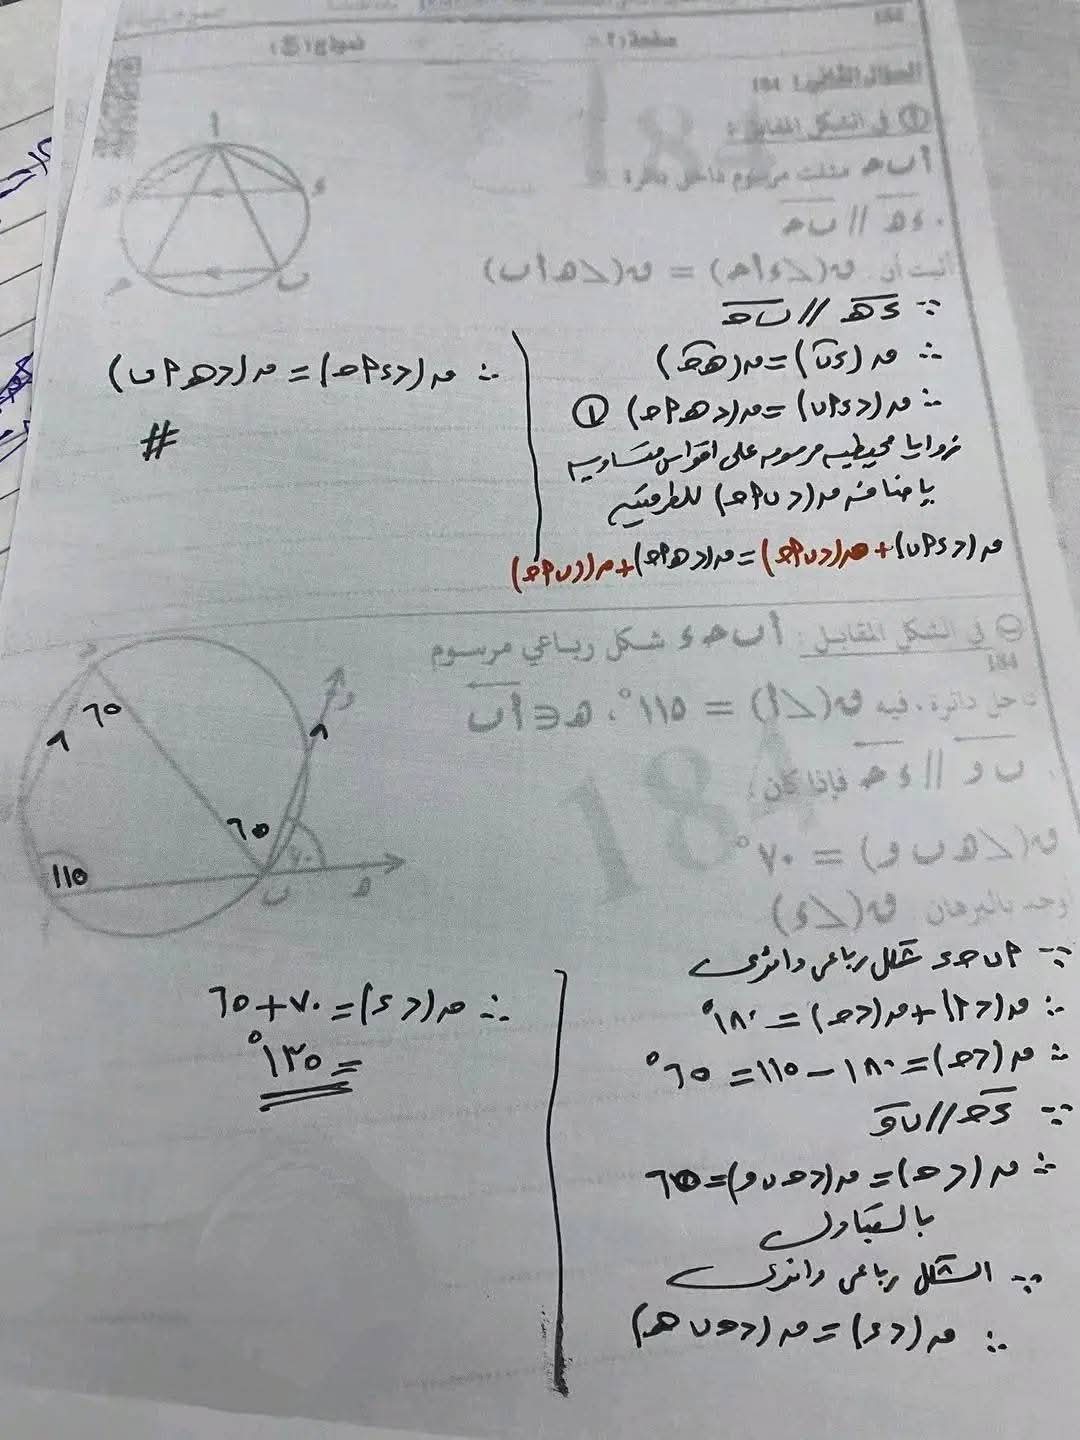 صفحة (٢)
نموذج (ج)
السؤال الثاني: 184
① في الشكل المقابل:
أ ب ح مثلث مرسوم داخل دائرة
ء هـ // ب ح
أثبت أن: ق(∠ء أ ح) = ق(∠هـ أ ب)
أ
ء
ب
ح
184
∵ ء هـ // ب ح
∴ ق(ء ب) = ق(هـ ح)
∴ ق(∠ء أ ب) = ق(∠هـ أ ح) ①
زوايا محيطيه مرسومه على اقواس متساويه
بإضافة ق(∠ب أ ح) للطرفين
ق(∠ء أ ب) + ق(∠ب أ ح) = ق(∠هـ أ ح) + ق(∠ب أ ح)
∴ ق(∠ء أ ح) = ق(∠هـ أ ب)
#
㊀ في الشكل المقابل: أ ب ح ء شكل رباعي مرسوم
184
داخل دائرة، فيه ق(∠أ) = ١١٥°، هـ ∈ أ ب
ب و // ء ح فإذا كان:
ق(∠هـ ب و) = ٧٠°
أوجد بالبرهان: ق(∠ء)
184
٦٥
٦٥
١١٥
٧٠
ح
و
ب
هـ
∵ أ ب ح ء شكل رباعي دائرى
∴ ق(∠أ) + ق(∠ح) = ١٨٠°
∴ ق(∠ح) = ١٨٠ − ١١٥ = ٦٥°
∵ ء ح // ب و
∴ ق(∠ح) = ق(∠ح ب و) = ٦٥
بالتبادل
∵ الشكل رباعى دائرى
∴ ق(∠ء) = ق(∠ح ب هـ)
∴ ق(∠ء) = ٧٠ + ٦٥
= ١٣٥°